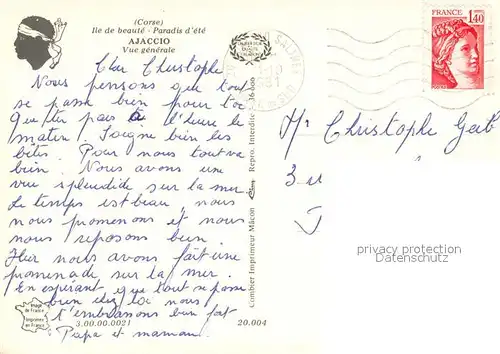 (Corse)
Ile de beauté - Paradis d'été
AJACCIO
Vue générale
Cher Christophe
Nous pensons que tout
se passe bien pour toi
Que tu pars à l'heure le
matin. Soigne bien les
bêtes. Pour nous tout va
bien. Nous avons une
vue splendide sur la mer.
Le temps est beau, nous
nous promenons et nous
nous reposons bien.
Hier nous avons fait une
promenade sur la mer.
En espérant que tout se passe
bien chez toi nous
t'embrassons bien fort
Papa et maman
3.00.00.0021
20.004
Image de France
Imprimée en France
Combier Imprimeur Mâcon
Repro. Interdite
FRANCE
1,40
POSTES
Mr Christophe
privacy protection
Datenschutz